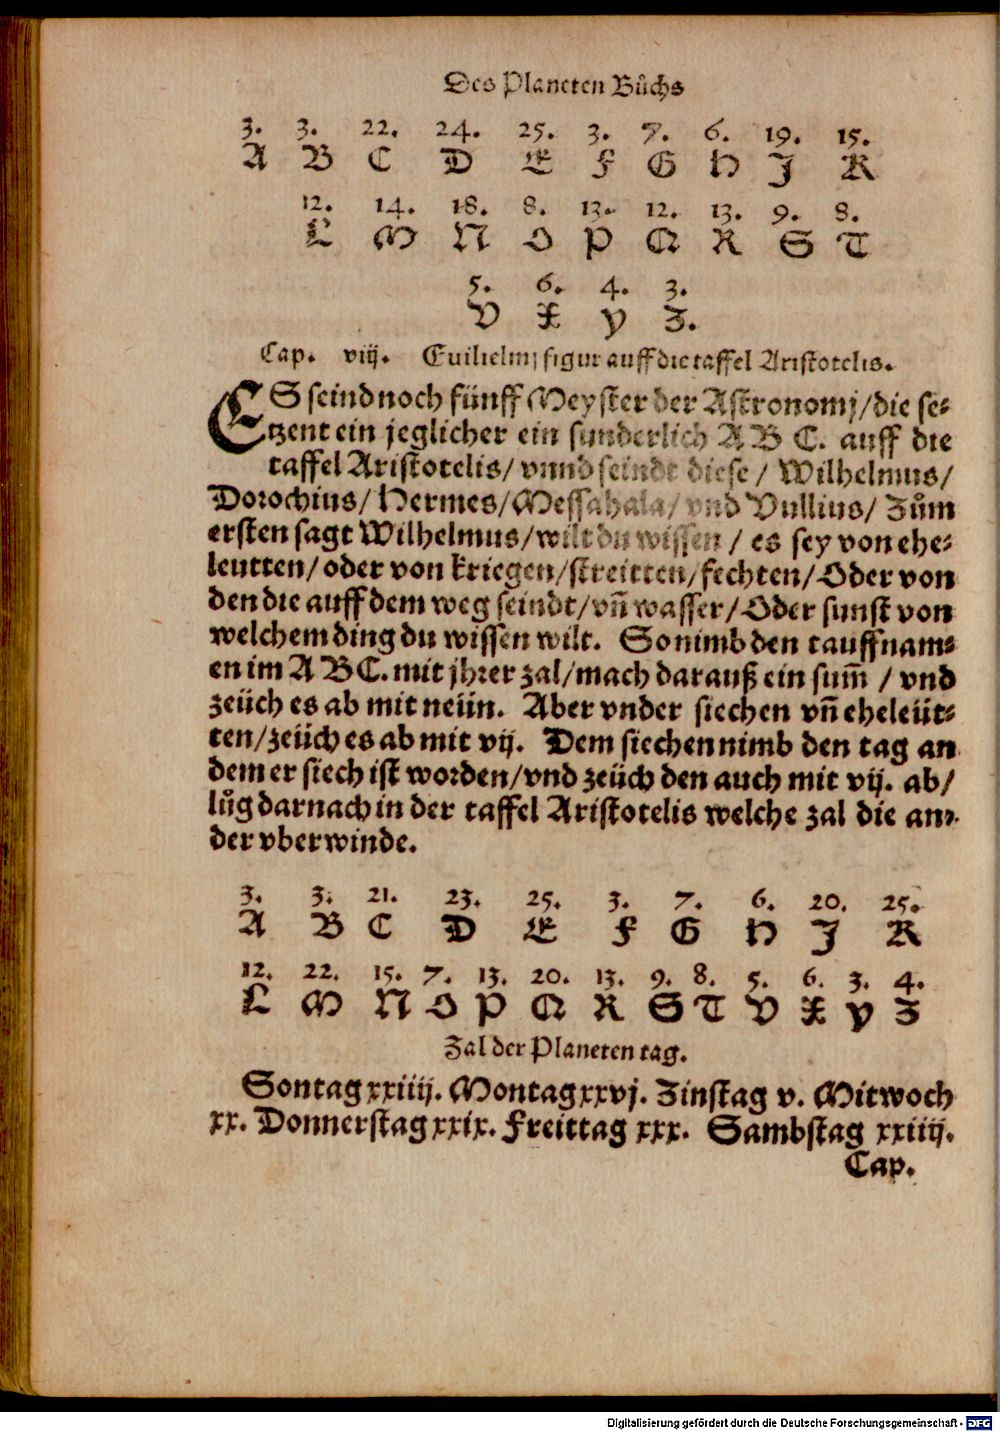 Des Planeten Bůchs
3. 3. 22. 24. 25. 3. 7. 6. 19. 15.
A B C D E F G H J K
12. 14. 18. 8. 13. 12. 13. 9. 8.
L M N O P Q R S T
5. 6. 4. 3.
V X Y Z.
Cap. viij. Guilielmj figur auff die taffel Aristotelis.
ES seind noch fünff Meyster der Astronomj/die se⸗
tzent ein jeglicher ein sunderlich A B C. auff die
taffel Aristotelis/ vnnd seindt diese / Wilhelmus/
Dorochius/ Hermes/ Messahala/ vnd Vullius/ Zům
ersten sagt Wilhelmus/wilt du wissen / es sey von ehe⸗
leutten/ oder von kriegen/streitten/fechten/Oder von
den die auff dem weg seindt/vñ wasser/Oder sunst von
welchem ding du wissen wilt. So nimb den tauffnam⸗
en im A B C. mit jhrer zal/mach darauß ein sum̃ / vnd
zeüch es ab mit neün. Aber vnder siechen vñ eheleüt⸗
ten/zeüch es ab mit vij. Dem siechen nimb den tag an
dem er siech ist worden/vnd zeüch den auch mit vij. ab/
lůg darnach in der taffel Aristotelis welche zal die an⸗
der vberwinde.
3. 3. 21. 23. 25. 3. 7. 6. 20. 25.
A B C D E F G H J K
12. 22. 15. 7. 13. 20. 13. 9. 8. 5. 6. 3. 4.
L M N O P Q R S T V X Y Z
Zal der Planeten tag.
Sontag xxiiij. Montag xxvj. Zinstag v. Mitwoch
xx. Donnerstag xxix. Freittag xxx. Sambstag xxiiij.
Cap.
Digitalisierung gefördert durch die Deutsche Forschungsgemeinschaft - DFG